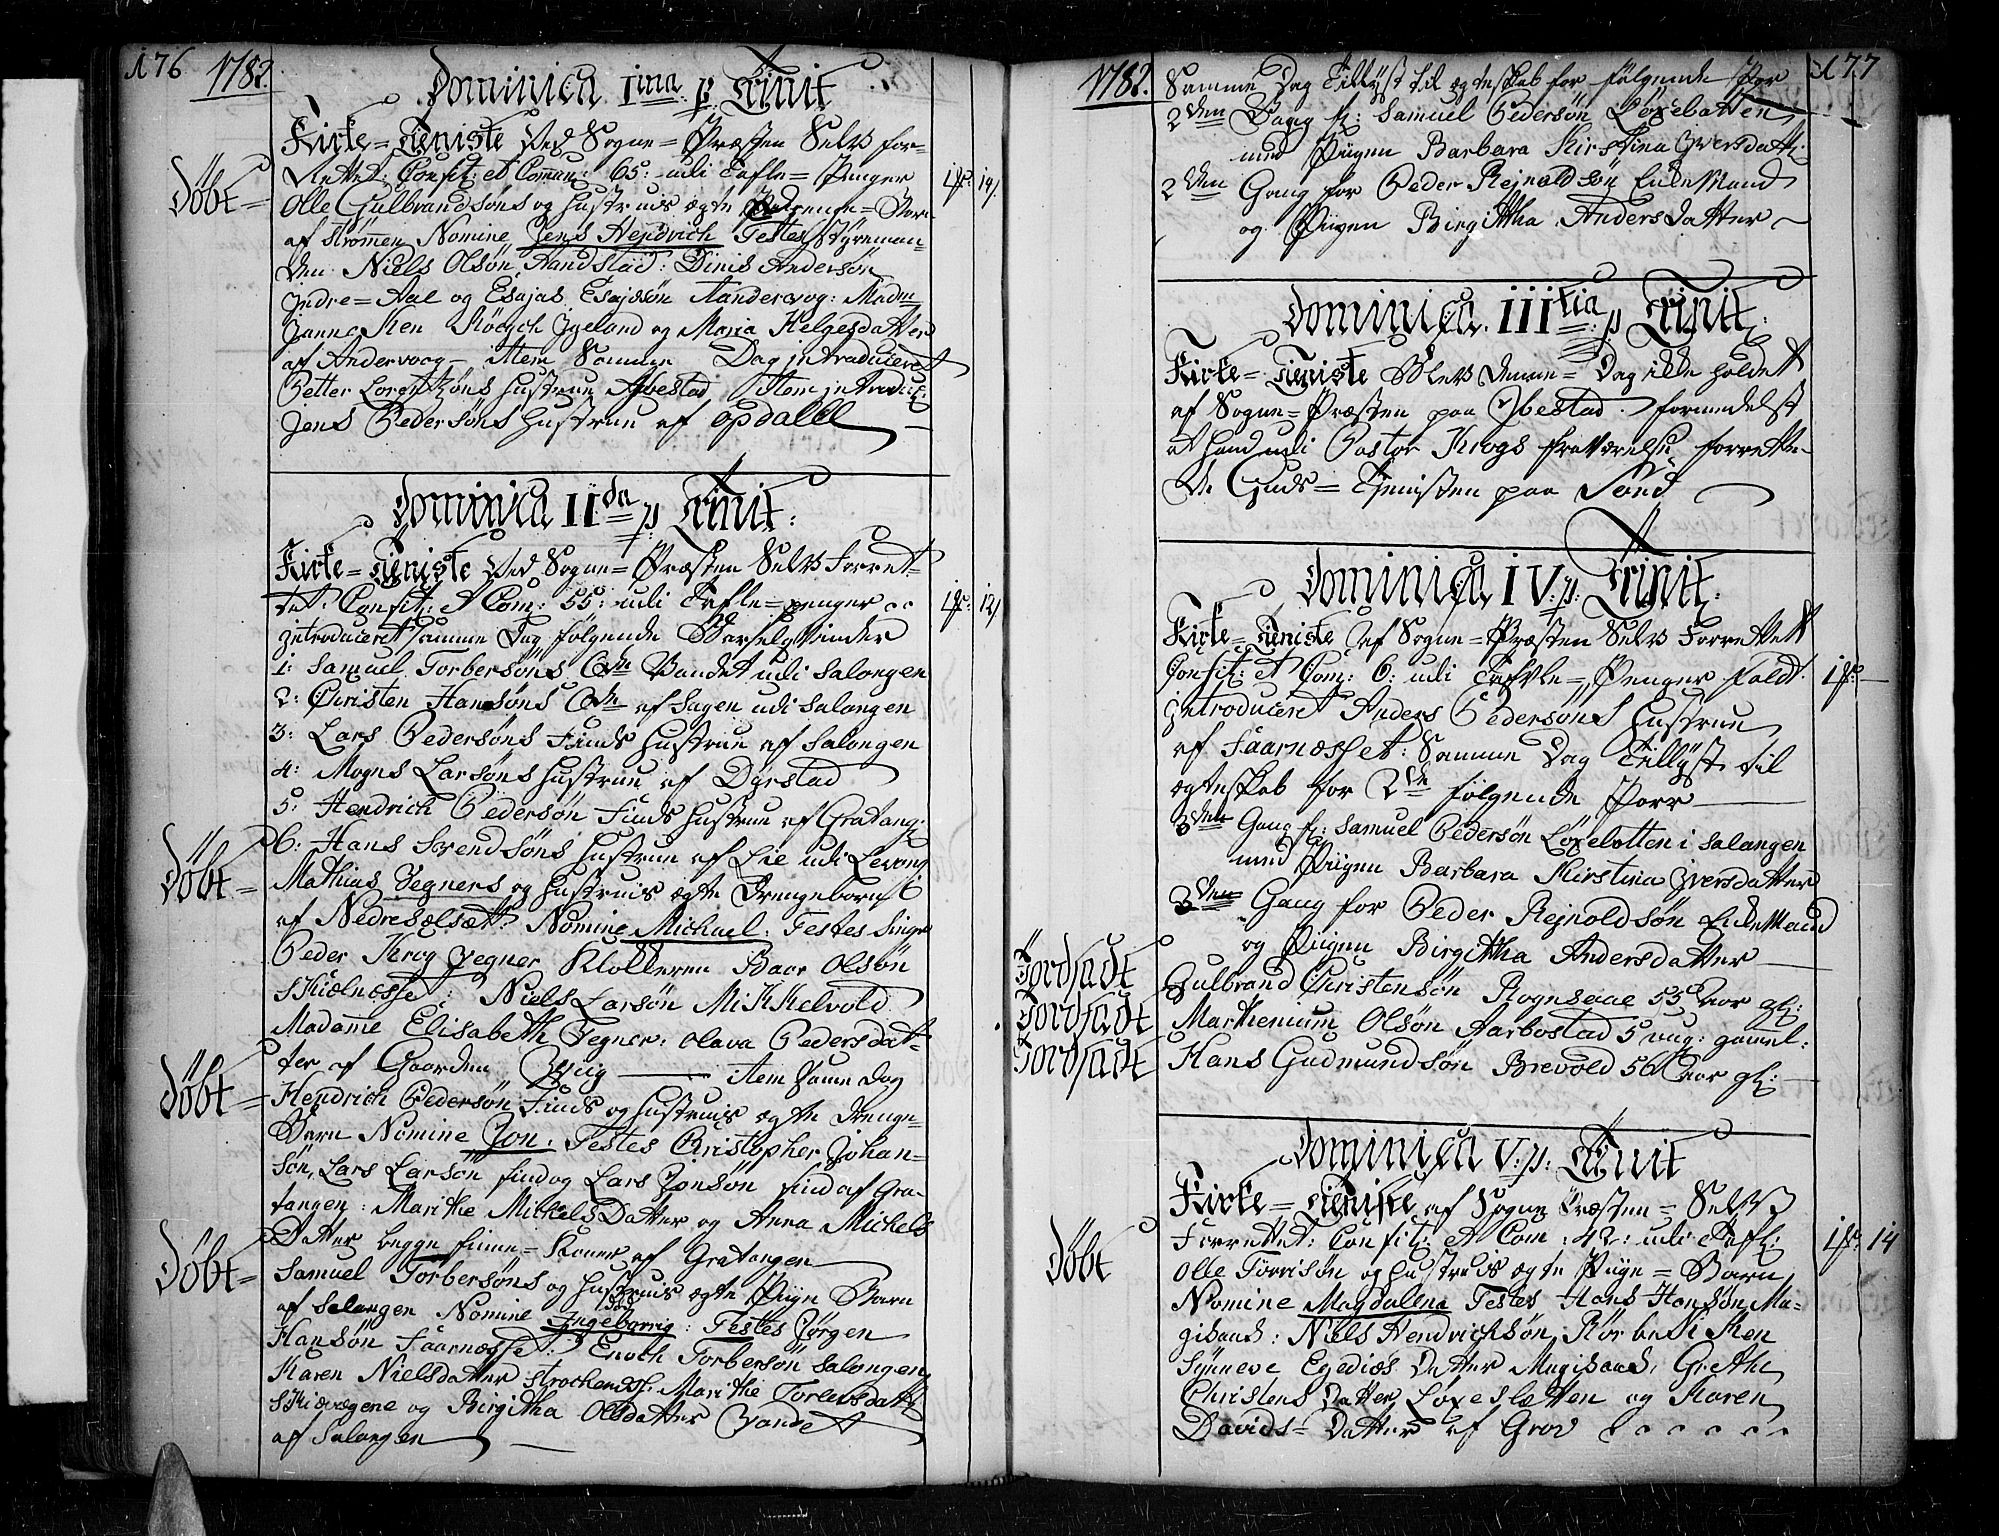 176 1782.
Dominica Ima p Trinit
Kirke=Tieniste Ved Sogne=Præsten Selv for-
rettet: Confit: et Comun: 65: udi Tafle=Penger
Døbt= Olle Gulbrandsöns og Hustrues ægte Drenge=Barn
af Strømen Nomine Jens Hendrich Testes Styreman-
den Niels Olsön, Dinis Andersön
Indre=Aae og Esajas Esajsön Madm
Maria Helgesdatter
af item Samme Dag introduceret
Petter Lorentzöns Hustrue Ibestad Item introduc:
Jens Pedersöns Hustrue af Opdalll
Dominica IIda p Trinit:
Kirke=Tieniste Ved Sogne=Præsten Selv Forret-
tet: Confit: et Com: 55: udi Tafle=penger
introduceret samme Dag følgende Barselqvinder
1: Samuel Torbersöns Vandet udi Salangen
2: Christen Hansöns af Sagen udi Salangen
3: Lars Pedersöns Finds Hustrue af Salangen
4: Mogns Larsöns Hustrue af Dyrstad
5: Hendrich Pedersön Finds Hustrue af Gratang:
6: Hans Svendsöns Hustrue af Lie udi Levang
Døbt= Mathias Vegners og Hustrues ægte Drengebarn
af Nomine Michael: Testes Singr
Peder Krig Vegner Klokkeren Baar Olsön
Skielnesset: Niels Larsön Mikkelvold
Madame Elisabeth Vegner: Olava Pedersdat-
ter af Gaarden Bÿig item Same Dag
Døbt= Hendrich Pedersön Finds og Hustrues ægte Drenge-
Barn Nomine Jon: Testes Christopher Johan-
sön, Lars Larsön find og Lars Jonsön find af Gra-
tangen: Marithe Michels Datter og Anna Michels
Datter begge finne=Koner af Gratangen
Døbt= Samuel Torbersöns og Hustrues ægte Piige Barn
af Salangen Nomine Ingebarrig: Testes Jørgen
Hansön Faarnesset: Enoch Torbersön Salangen
Karen Nielsdatter Marithe
og Birgitha Olsdatter Vandet
af Salangen
1782. 177
Samme Dag Tillÿst til ægteskab for følgende Por
2den Gang f: Samuel Pedersön Løxebatten
med Piigen Barbara Kirstina Iversdatt:
2den Gang for Peder Rejnoldsön Enkemand
og Piigen Birgittha Anders Datter
Dominica IIItia p Trinit:
Kirke=Tieniste Blev Denne=Dag ikke holdet
af Sogne=Præsten paa Ybestad formedelst
at hand udi Pastor Krogs fraværelse forrette-
de Guds=Tjenisten paa Sand
Dominica IV p: Trinit:
Kirke=Tieniste af Sogne=Præsten Selv Forrettet
Confit: et Com: 6: udi Tafle=Penger fald:
introduceret Anders Pedersöns Hustrue
af Faarnesset: Samme Dag Tillÿst til
ægteskab for 2de følgende Parr
3den Gang f: Samuel Pedersön Løxelotten i Salangen
med Piigen Barbara Kirstina Iversdatter
3den Gang for Peder Rejnoldsön Enkemand
og Piigen Birgittha Andersdatter
Jordfæst Gulbrand Christensön Rognsaae 55 aar gl:
Jordfæst Marthenium Olsön Aarbostad 5 uug: gamel:
Jordfæst Hans Gudmundsön Brevold 56 aar gl:
Dominica V: p: Trinit
Kirke=Tieniste af Sogne Præsten=Selv
Forrettet: Confit: et Com: 42: udi Tafl:
Døbt Olle Torrisön og Hustrues ægte Piige=Barn
Nomine Magdalena Testes Hans Hansön Ma-
gisand: Niels Hendrichsön,
Synneve Egedies Datter Magisand, Grethe
Christens Datter Løxeslætten og Karen
Davids=Datter af Grov